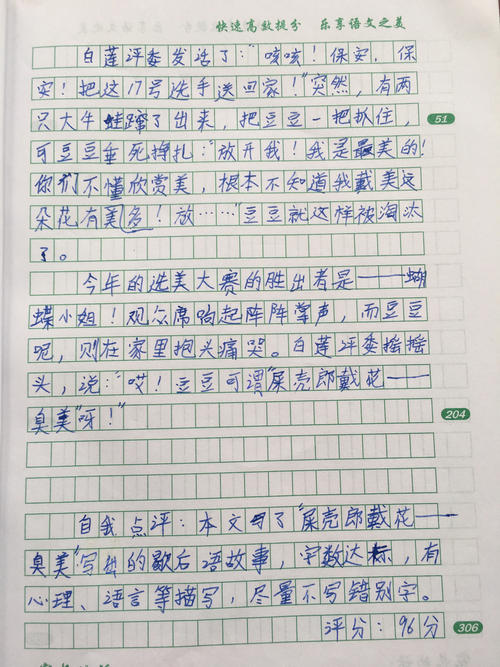 快速高效提分 乐享语文之美
白莲评委发话了："咳咳！保安，保
安！把这17号选手送回家！"突然，有两
只大牛蛙蹿了出来，把豆豆一把抓住，
51
可豆豆垂死挣扎："放开我！我是最美的！
你们不懂欣赏美，根本不知道我戴美这
朵花有美多！放……"豆豆就这样被淘汰
了。
今年的选美大赛的胜出者是——蝴
蝶小姐！观众席响起阵阵掌声，而豆豆
呢，则在家里抱头痛哭。白莲评委摇摇
头，说："哎！豆豆可谓"屎壳郎戴花——
臭美"呀！"
204
自我点评：本文写了"屎壳郎戴花——
臭美"写出的歇后语故事，字数达标，有
心理、语言等描写，尽量不写错别字。
评分：96分
306